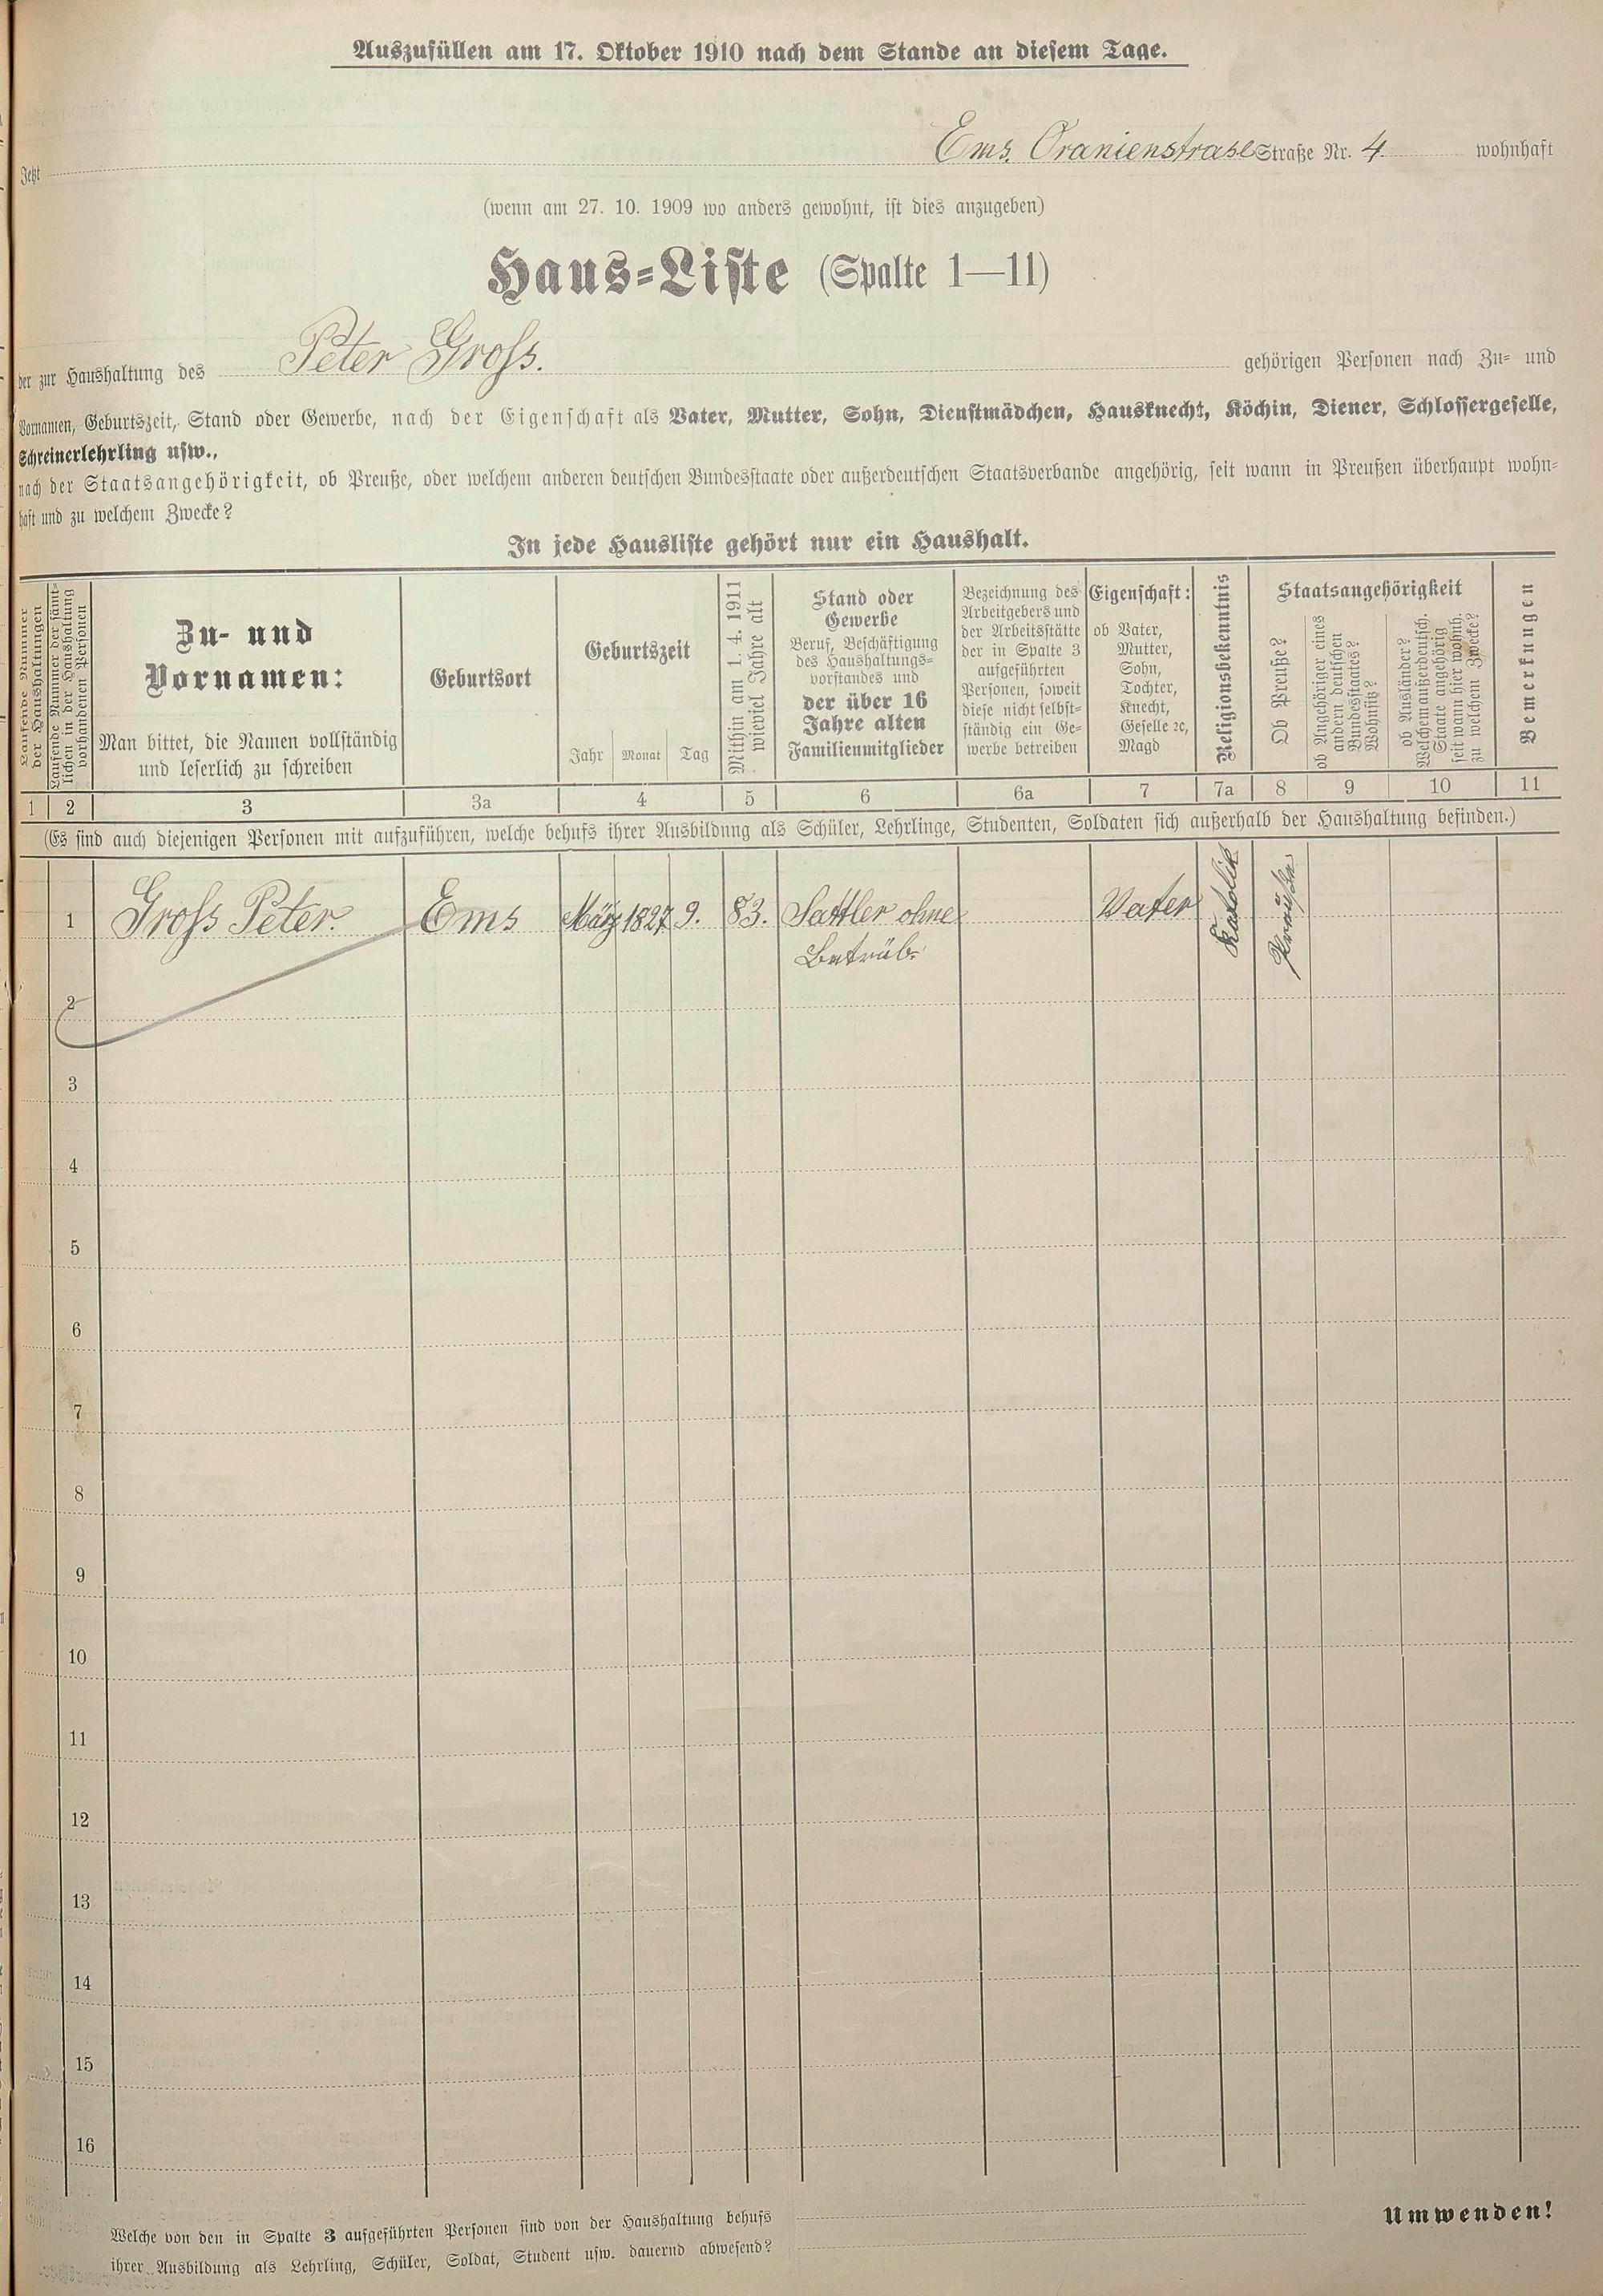 Auszufüllen am 17. Oktober 1910 nach dem Stande an diesem Tage.
Jetzt Ems. Oranienstrase Straße Nr. 4. wohnhaft
(wenn am 27. 10. 1909 wo anders gewohnt, ist dies anzugeben)
Haus-Liste (Spalte 1—11)
der zur Haushaltung des Peter Gross. gehörigen Personen nach Zu- und
Vornamen, Geburtszeit, Stand oder Gewerbe, nach der Eigenschaft als Vater, Mutter, Sohn, Dienstmädchen, Hausknecht, Köchin, Diener, Schlossergeselle,
Schreinerlehrling usw.,
nach der Staatsangehörigkeit, ob Preuße, oder welchem anderen deutschen Bundesstaate oder außerdeutschen Staatsverbande angehörig, seit wann in Preußen überhaupt wohn-
haft und zu welchem Zwecke?
In jede Hausliste gehört nur ein Haushalt.
Laufende Nummer
der Haushaltungen
Laufende Nummer der sämt-
lichen in der Haushaltung
vorhandenen Personen
Zu- und
Vornamen:
Man bittet, die Namen vollständig
und leserlich zu schreiben
Geburtsort
Geburtszeit
Jahr Monat Tag
Mithin am 1. 4. 1911
wieviel Jahre alt
Stand oder
Gewerbe
Beruf, Beschäftigung
des Haushaltungs-
vorstandes und
der über 16
Jahre alten
Familienmitglieder
Bezeichnung des
Arbeitgebers und
der Arbeitsstätte
der in Spalte 3
aufgeführten
Personen, soweit
diese nicht selbst-
ständig ein Ge-
werbe betreiben
Eigenschaft:
ob Vater,
Mutter,
Sohn,
Tochter,
Knecht,
Geselle ꝛc,
Magd
Religionsbekenntnis
Staatsangehörigkeit
Ob Preuße?
ob Angehöriger eines
andern deutschen
Bundesstaates?
Wohnsitz?
ob Ausländer?
Welchem außerdeutsch.
Staate angehörig
seit wann hier wohnh.
zu welchem Zwecke?
Bemerkungen
1 2 3 3a 4 5 6 6a 7 7a 8 9 10 11
(Es sind auch diejenigen Personen mit aufzuführen, welche behufs ihrer Ausbildung als Schüler, Lehrlinge, Studenten, Soldaten sich außerhalb der Haushaltung befinden.)
1 Gross Peter. Ems März 1827 9. 83. Sattler ohne Vater Katolik
2
3
4
5
6
7
8
9
10
11
12
13
14
15
16
Welche von den in Spalte 3 aufgeführten Personen sind von der Haushaltung behufs
ihrer Ausbildung als Lehrling, Schüler, Soldat, Student usw. dauernd abwesend?
Umwenden!